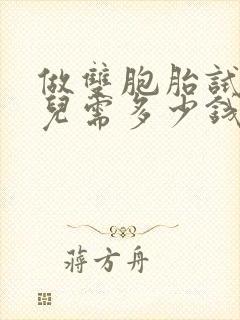 做雙胞胎試
兒需多少錢
蔣方舟